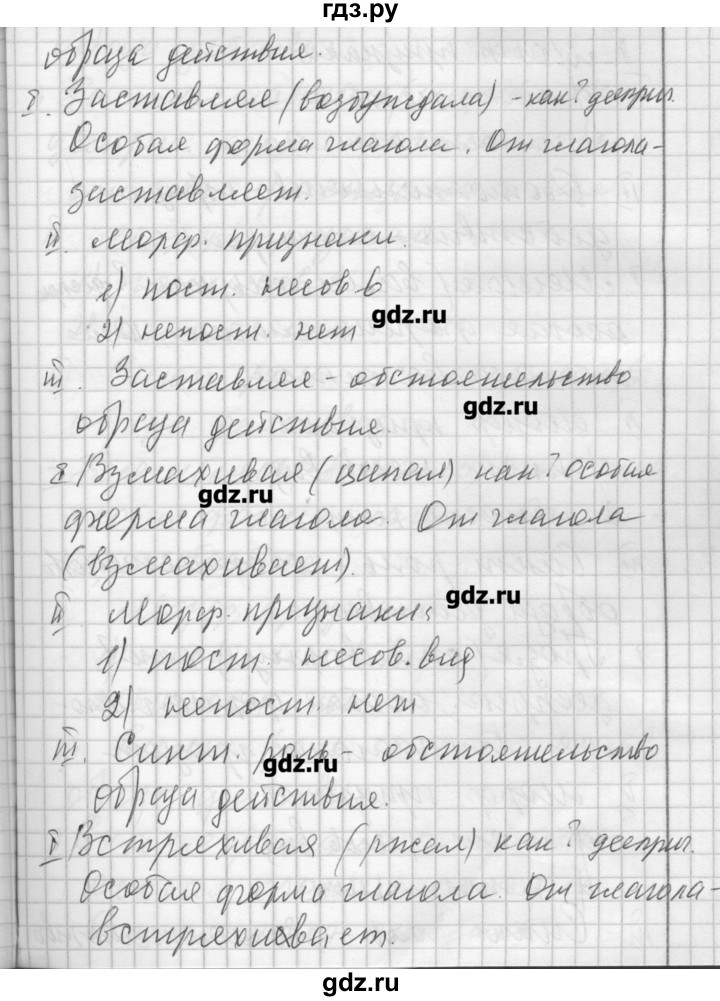 гдз.ру
образа действия.
I. Заставляя (возбуждала) - как? дееприч.
Особая форма глагола. От глагола-
заставляет.
II. Морф. признаки.
1) пост. несов в
2) непост. нет
gdz.ru
III. Заставляя - обстоятельство
gdz.ru
образа действия.
I Взмахивая (цапал) как? особая
gdz.ru
форма глагола. От глагола
(взмахивает).
gdz.ru
II. Морф. признаки:
1) пост. несов. вид
2) непост. нет
III. Синт. роль - обстоятельство
gdz.ru
образа действия.
I Встряхивая (ржал) как? дееприч.
Особая форма глагола. От глагола-
встряхивает.
gdz.ru